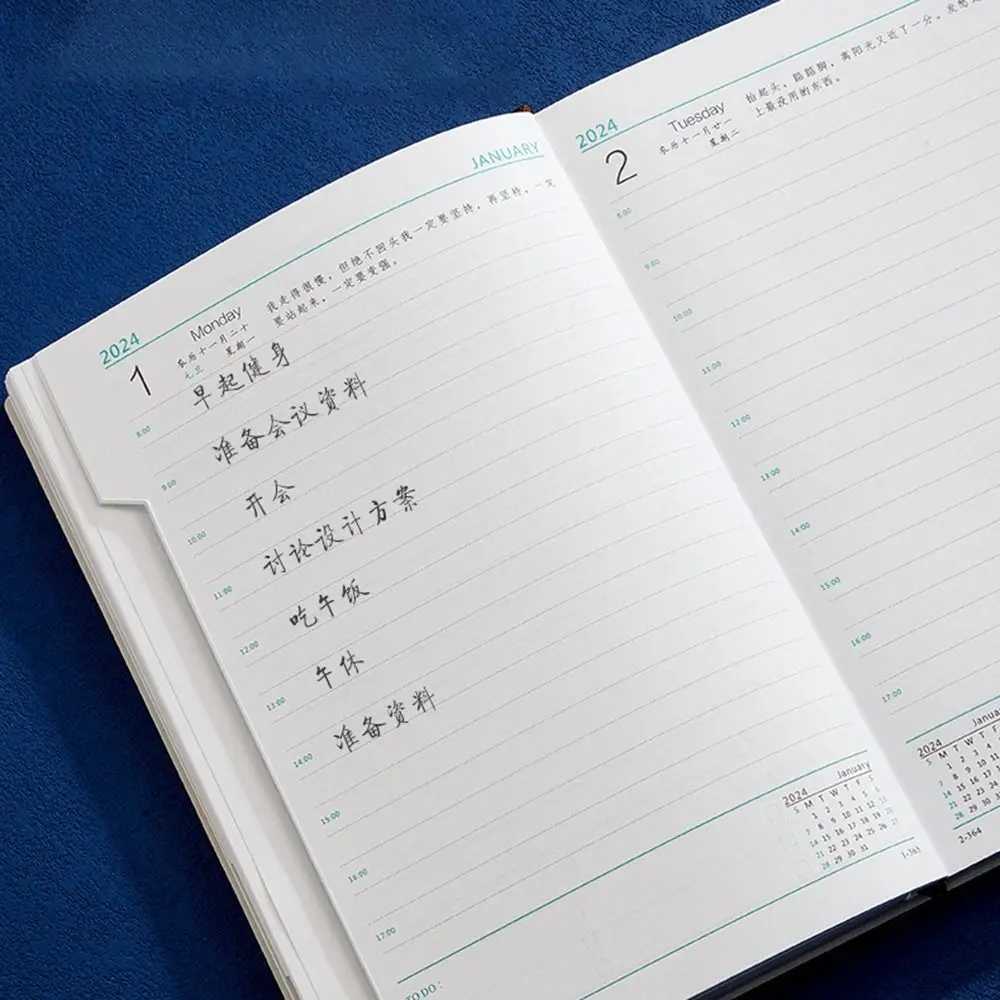 JANUARY
2024 Monday 我走得很慢，但绝不回头我一定要坚持，再坚持，一定
1 农历十一月二十 星期一 要站起来，一定要变强。
元旦
早起健身
8:00
准备会议资料
9:00
开会
10:00
讨论设计方案
11:00
吃午饭
12:00
午休
13:00
准备资料
14:00
15:00
16:00
17:00
2024 January
S M T W T F S
1 2 3 4 5 6
7 8 9 10 11 12 13
14 15 16 17 18 19 20
21 22 23 24 25 26 27
28 29 30 31
1-365
TODO:
2024 Tuesday 抬起头，踮踮脚，离阳光又近了一分。发愁是
2 农历十一月廿一 星期二 上最没用的东西。
8:00
9:00
10:00
11:00
12:00
13:00
14:00
15:00
16:00
17:00
2024 Janua
S M T W T F
1 2 3 4 5
7 8 9 10 11
14 15 16 17 18
21 22 23 24 25
28 29 30 31
2-364